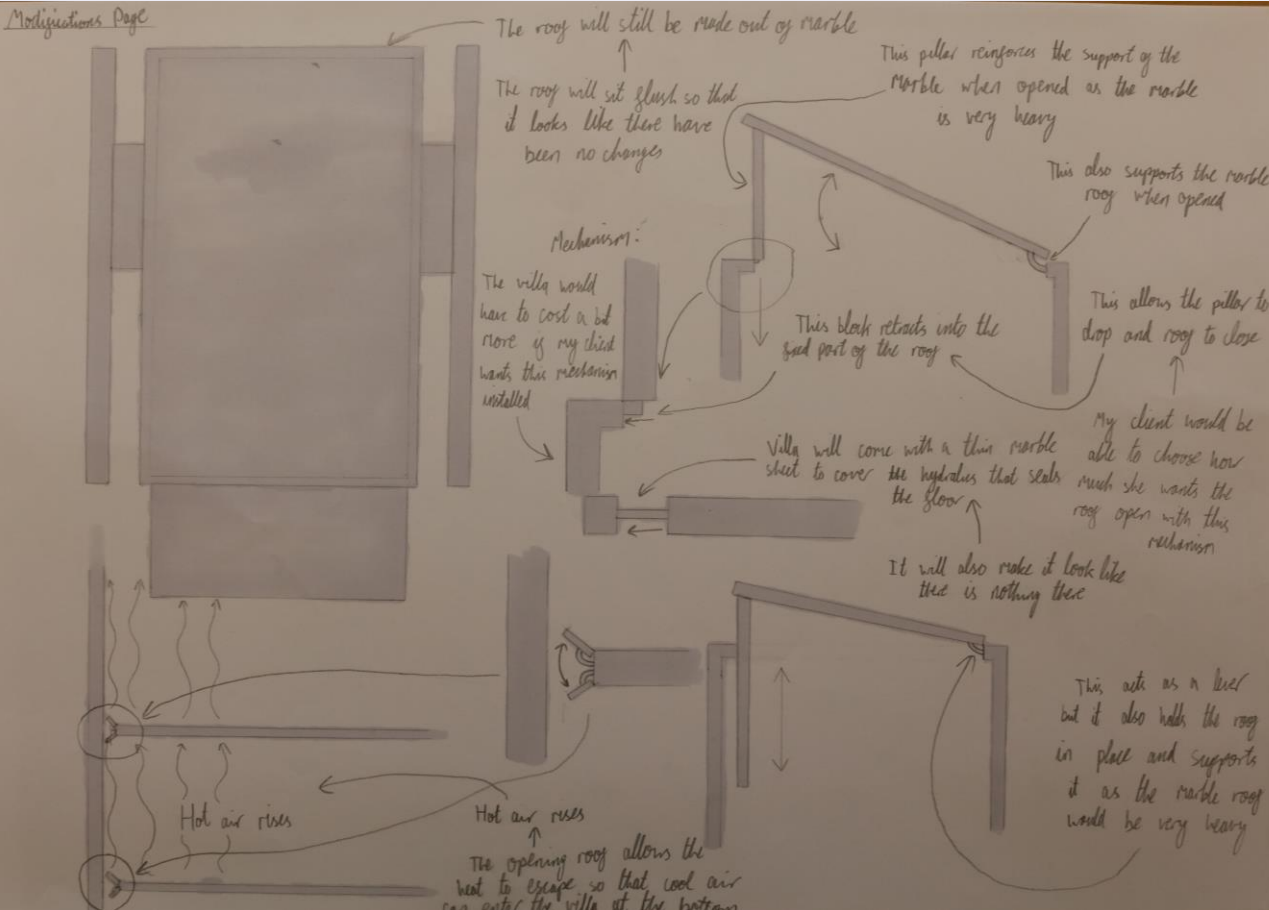 Modifications Page
The roof will still be made out of marble
The roof will sit flush so that
it looks like there have
been no changes
This pillar reinforces the support of the
marble when opened as the marble
is very heavy
This also supports the marble
roof when opened
Mechanism:
The villa would
have to cost a bit
more if my client
wants this mechanism
installed
This block retracts into the
fixed part of the roof
This allows the pillar to
drop and roof to close
My client would be
able to choose how
much she wants the
roof open with this
mechanism
Villa will come with a thin marble
sheet to cover the hydralics that seals
the floor
It will also make it look like
there is nothing there
This acts as a lever
but it also holds the roof
in place and supports
it as the marble roof
would be very heavy
Hot air rises
Hot air rises
The opening roof allows the
heat to escape so that cool air
can enter the villa at the bottom